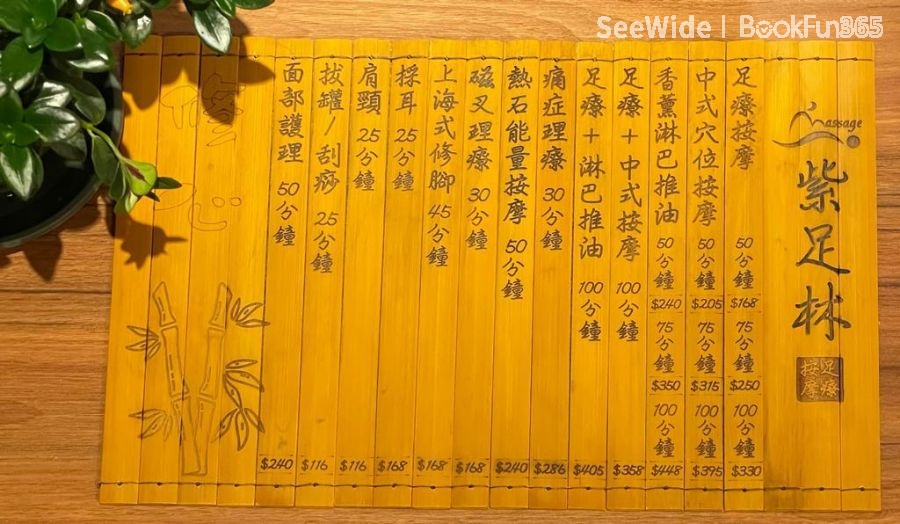 SeeWide | BookFun365
Massage
紫足林
足療按摩
足療按摩 50分鐘 $168 75分鐘 $250 100分鐘 $330
中式穴位按摩 50分鐘 $205 75分鐘 $315 100分鐘 $395
香薰淋巴推油 50分鐘 $240 75分鐘 $350 100分鐘 $448
足療+中式按摩 100分鐘 $358
足療+淋巴推油 100分鐘 $405
痛症理療 30分鐘 $286
熱石能量按摩 50分鐘 $240
磁叉理療 30分鐘 $168
上海式修腳 45分鐘 $168
採耳 25分鐘 $168
肩頸 25分鐘 $116
拔罐/刮痧 25分鐘 $116
面部護理 50分鐘 $240